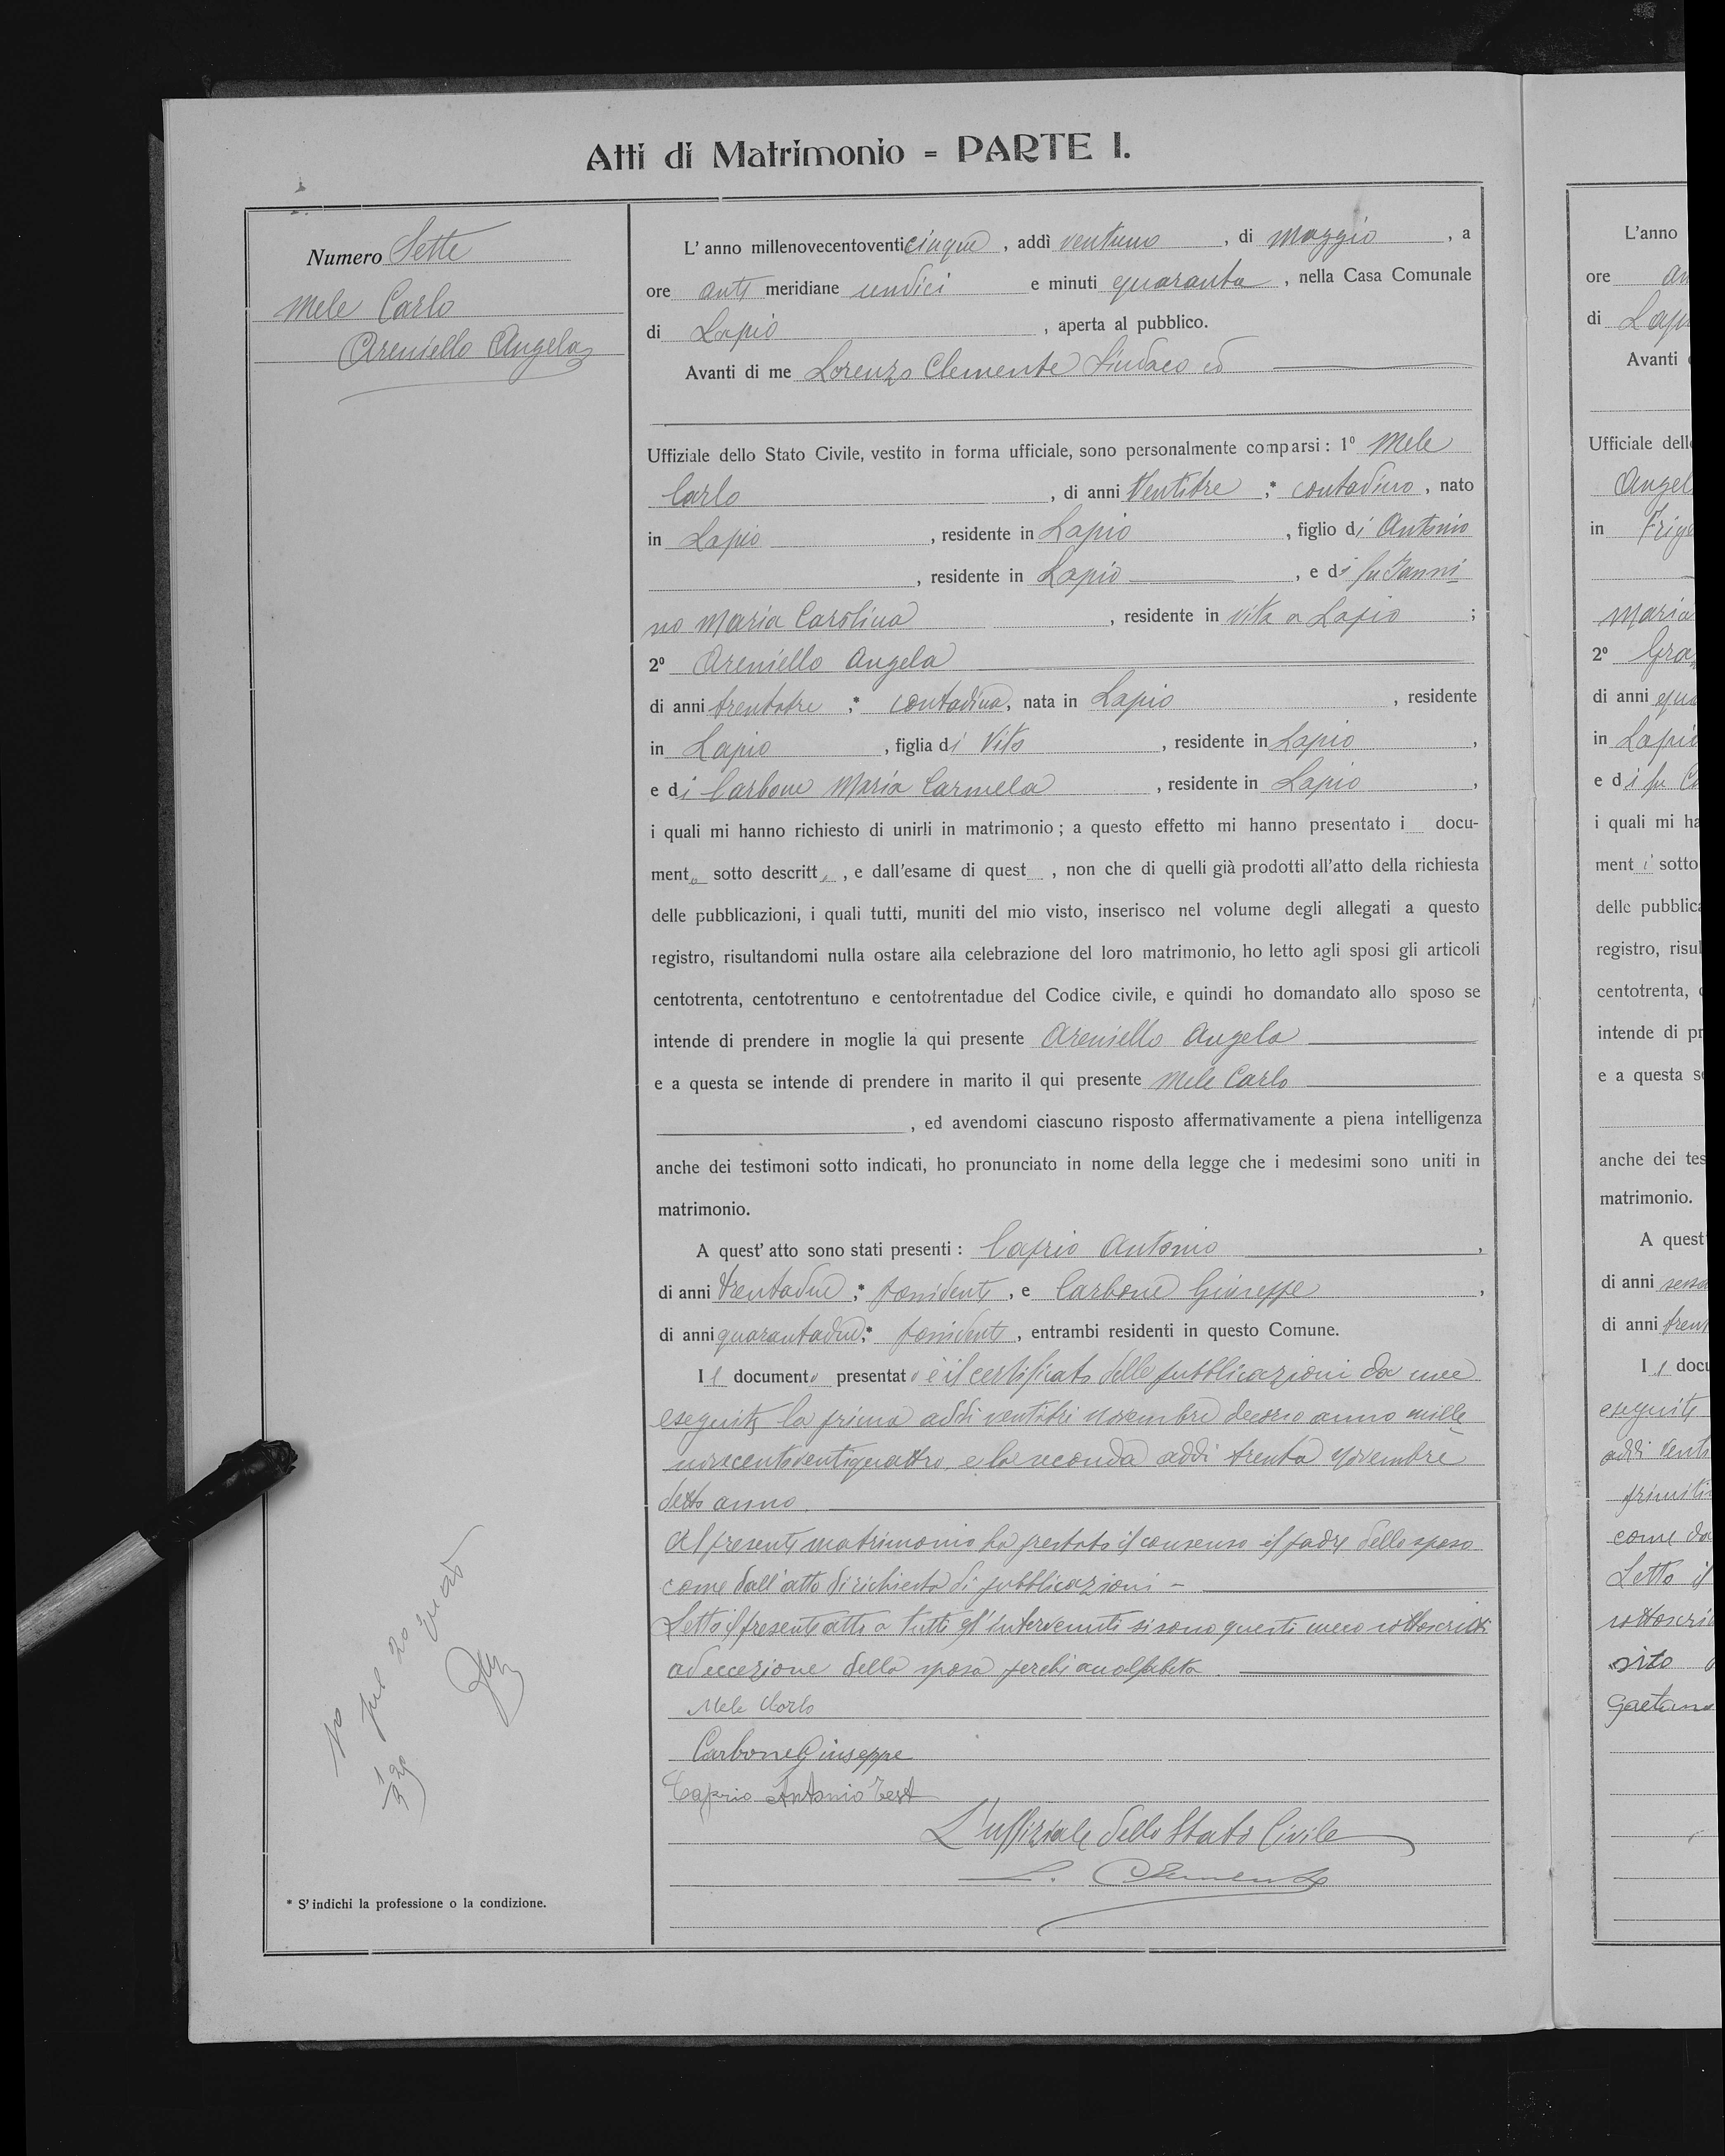 Atti di Matrimonio = PARTE I.
Numero Sette
Mele Carlo
Areniello Angela
L'anno millenovecentoventicinque, addì ventuno, di Maggio, a
ore anti meridiane undici e minuti quaranta, nella Casa Comunale
di Lapio, aperta al pubblico.
Avanti di me Lorenzo Clemente Sindaco ed
Uffiziale dello Stato Civile, vestito in forma ufficiale, sono personalmente comparsi: 1º Mele
Carlo, di anni Ventitre;* contadino, nato
in Lapio, residente in Lapio, figlio di Antonio
, residente in Lapio, e di fu Janni
no Maria Carolina, residente in vita a Lapio;
2º Areniello Angela
di anni trentatre;* contadina, nata in Lapio, residente
in Lapio, figlia di Vito, residente in Lapio,
e di Carbone Maria Carmela, residente in Lapio,
i quali mi hanno richiesto di unirli in matrimonio; a questo effetto mi hanno presentato i docu-
mento sotto descritto, e dall'esame di quest , non che di quelli già prodotti all'atto della richiesta
delle pubblicazioni, i quali tutti, muniti del mio visto, inserisco nel volume degli allegati a questo
registro, risultandomi nulla ostare alla celebrazione del loro matrimonio, ho letto agli sposi gli articoli
centotrenta, centotrentuno e centotrentadue del Codice civile, e quindi ho domandato allo sposo se
intende di prendere in moglie la qui presente Areniello Angela
e a questa se intende di prendere in marito il qui presente Mele Carlo
, ed avendomi ciascuno risposto affermativamente a piena intelligenza
anche dei testimoni sotto indicati, ho pronunciato in nome della legge che i medesimi sono uniti in
matrimonio.
A quest'atto sono stati presenti: Caprio Antonio,
di anni trentadue;* possidente, e Carbone Giuseppe,
di anni quarantadue;* possidente, entrambi residenti in questo Comune.
Il documento presentato è il certificato delle pubblicazioni da me
eseguite la prima addì ventitré novembre decorso anno mille
novecentoventiquattro e la seconda addì trenta novembre
detto anno.
Al presente matrimonio ha prestato il consenso il padre dello sposo
come dall'atto di richiesta di pubblicazioni -
Letto il presente atto a tutti gl'intervenuti si sono questi meco sottoscritti
ad eccezione della sposa perché analfabeta.
Mele Carlo
Carbone Giuseppe
Caprio Antonio Test
L'uffiziale dello Stato Civile
L. Clemente
* S'indichi la professione o la condizione.
L'anno
ore
di
Avanti
Ufficiale
Angel
in
Maria
2º
di anni
in Lapio
e di fu
i quali mi
menti sotto
delle
registro,
centotrenta,
intende di
e a questa
anche dei
matrimonio.
A quest'
di anni
di anni
Il
eseguite
addì
come
Letto il
sito
Gaetano